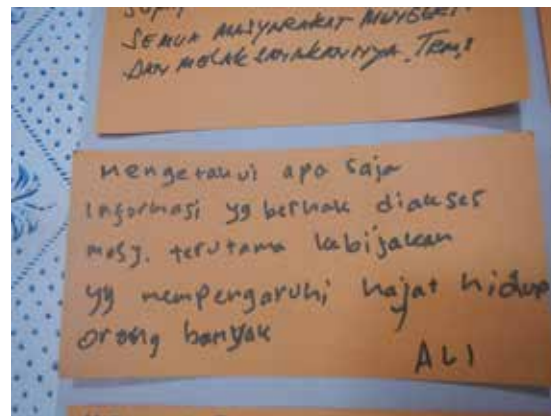 SEMUA MASYARAKAT
DAN MELAKSANAKANNYA. TRMS
Mengetahui apa saja
informasi yg berhak diakses
masy. terutama kebijakan
yg mempengaruhi hajat hidup
orang banyak
ALI